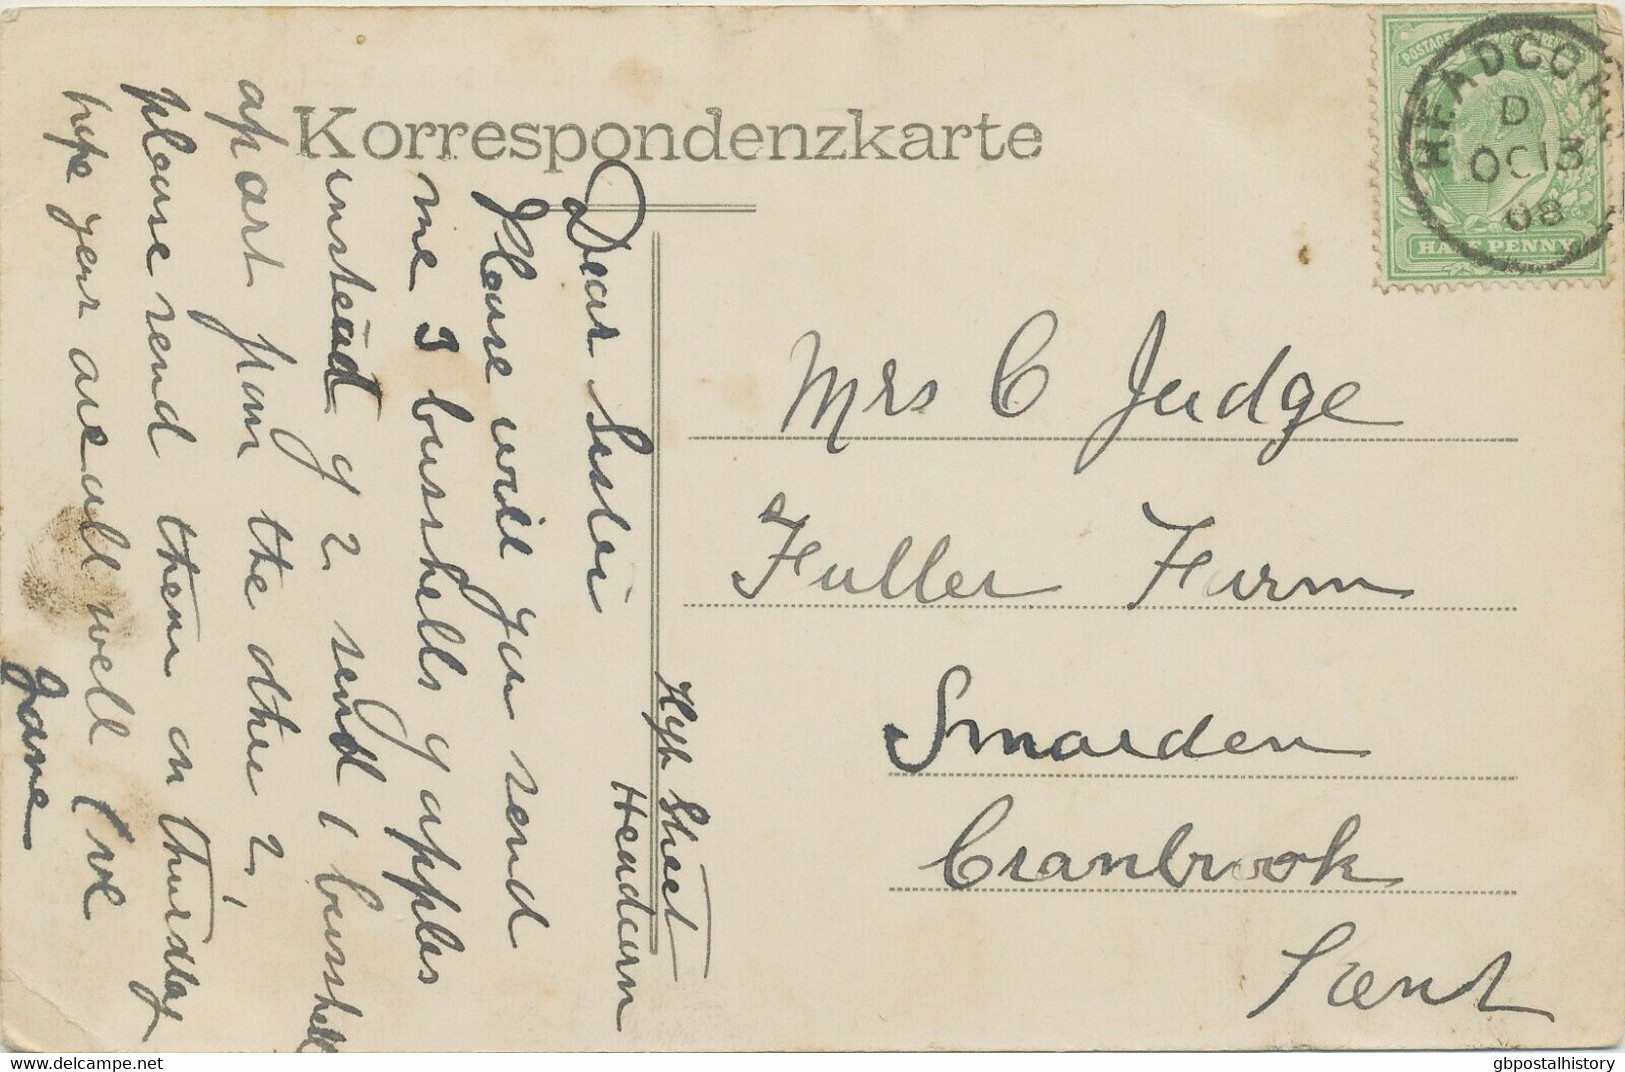 Korrespondenzkarte
POSTAGE
HALF PENNY
HEADCORN
D
OC 13
08
Mrs C Judge
Fuller Farm
Smarden
Cranbrook
Kent
High Street
Headcorn
Dear Sister
Please will you send
me 3 busshells of apples
instead of 2 send 1 busshell
apart from the other 2,
please send them on thursday
hope your are all well love
Jane
gbpostalhistory